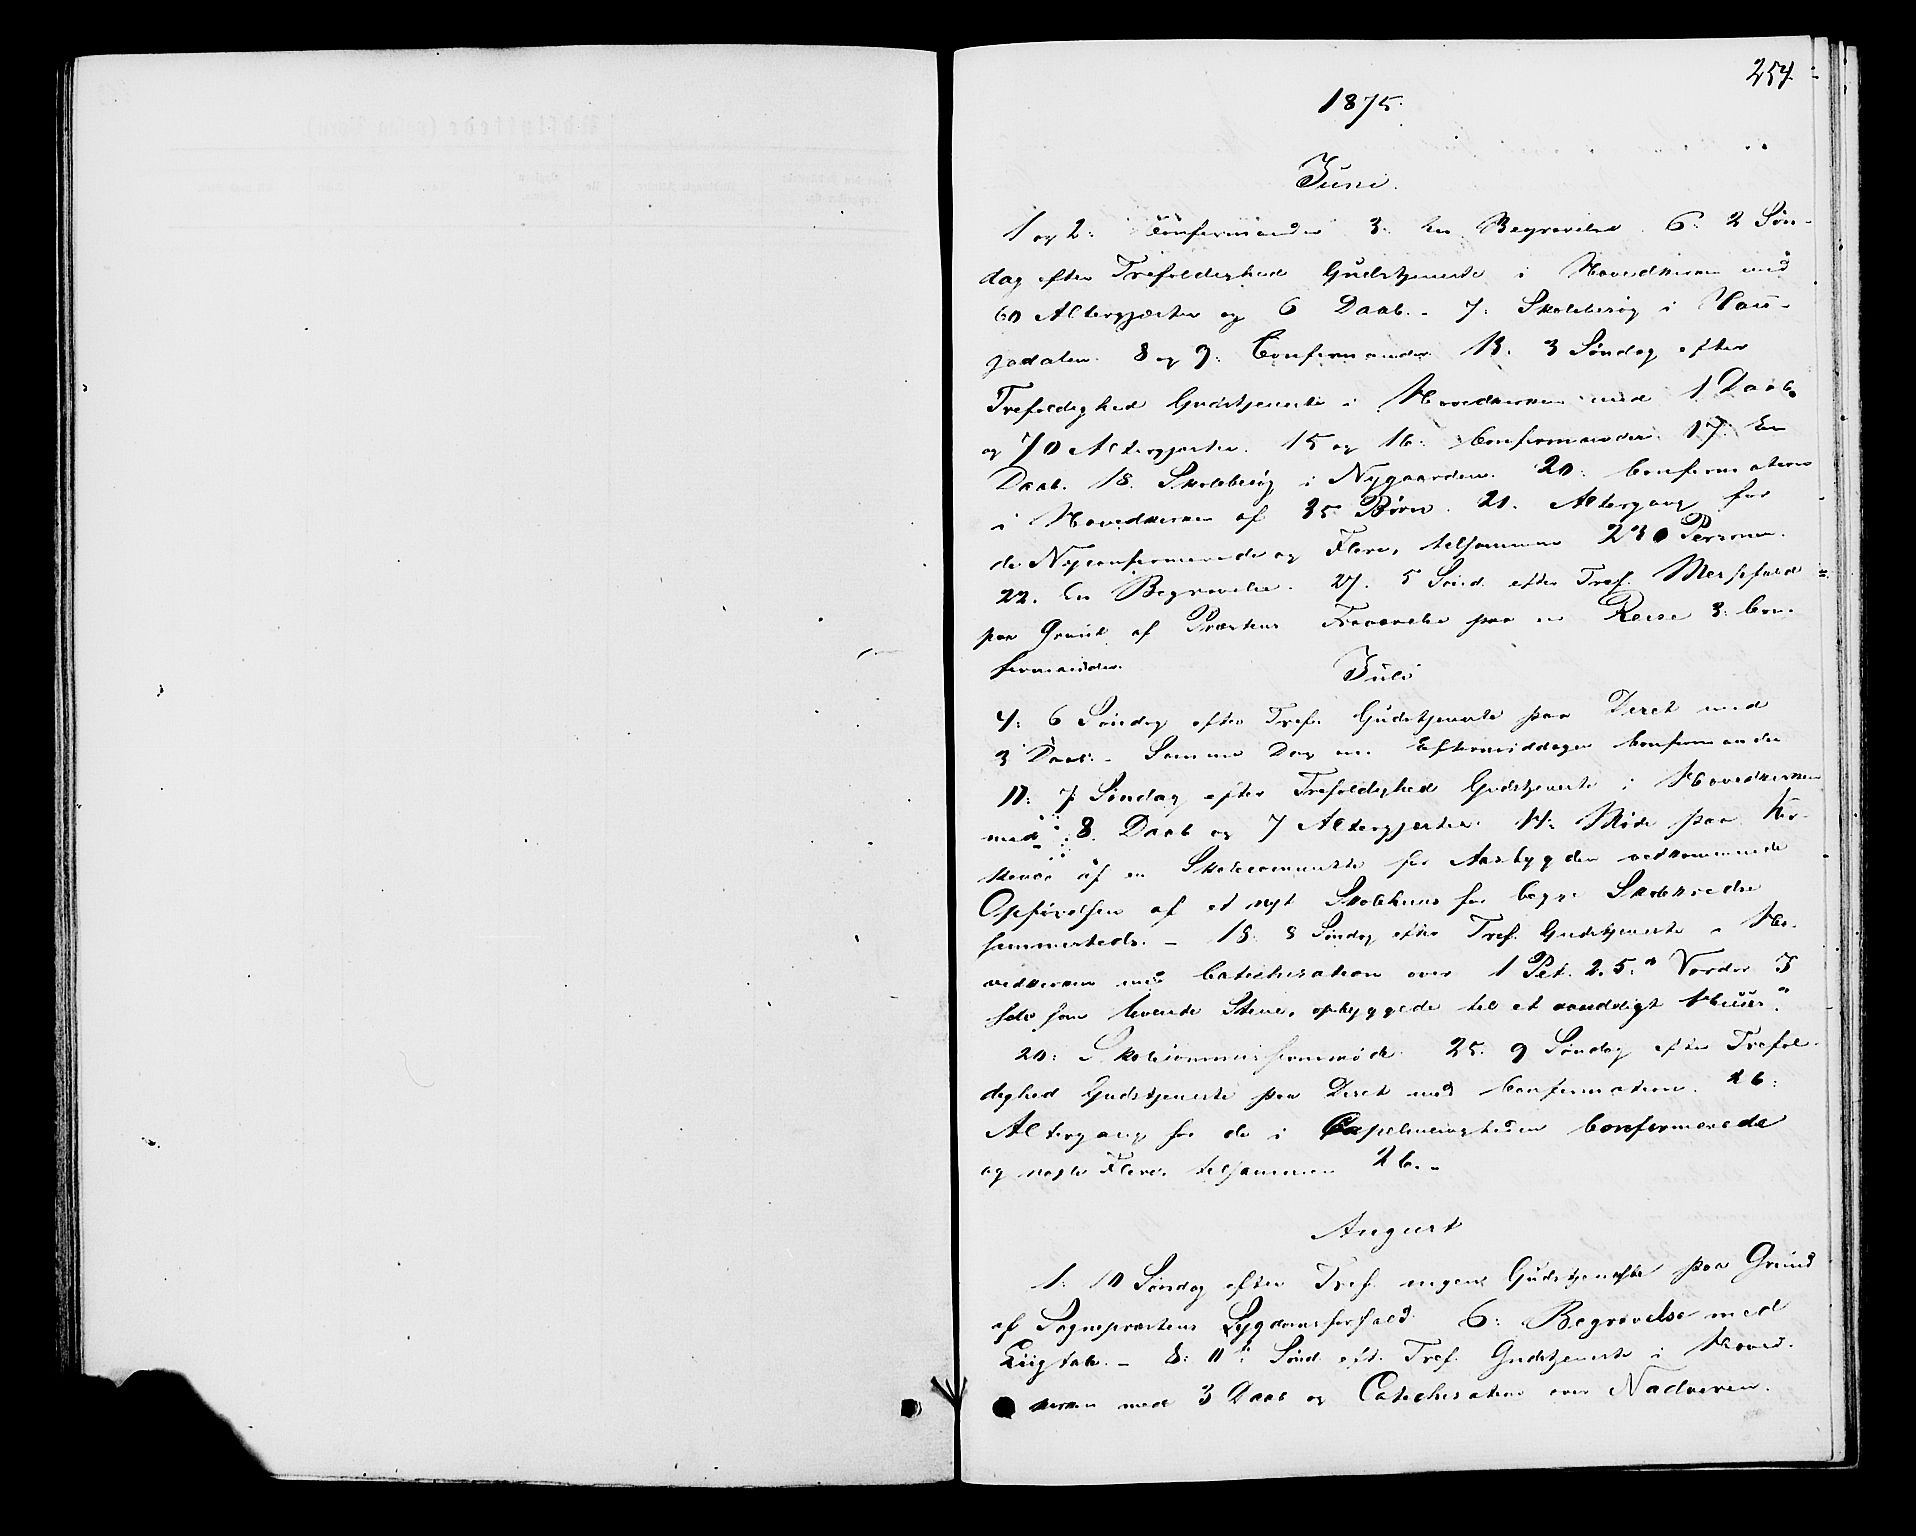 254.
1875.
Juni.
1 og 2: Confirmander 3: En Begravelse. 6: 2 Søn-
dag efter Trefoldighed Gudstjeneste i Hovedkirken med
60 Altergjæster og 6 Daab. - 7: Skolebesøg i Hau-
gadalen. 8 og 9: Confirmander 13: 3 Søndag efter
Trefoldighed Gudstjeneste i Hovedkirken med 1 Daab
og 70 Altergjæster. 15 og 16: Confirmander. 17: En
Daab. 18. Skolebesøg i Nygaarden. 20: Confirmation
i Hovedkirken af 35 Børn. 21. Altergang for
de Nyconfirmerede og Flere, tilsammen 230 Personer.
22. En Begravelse. 27. 5 Sønd. efter Tref. Messefald
paa Grund af Præstens Fraværelse paa en Reise 3: Con-
firmander.
Juli
4: 6 Søndag efter Tref. Gudstjeneste paa Deset med
3 Daab. - Samme Dag om Eftermiddagen Confirmander
11: 7 Søndag efter Trefoldighed Gudstjeneste i Hovedkirken
med 8 Daab og 7 Altergjæster. 14: Møde paa
af en for vedkommende
Opførelsen af et nyt Skolehuus for
sammesteds. - 18: 8 Søndag efter Tref. Gudstjeneste i Ho-
vedkirken med Catechisation over 1 Pet. 2.5. "Vorder I
selv som levende Stene, opbyggede til et aandeligt Huus".
20: Skolecommissionsmøde. 25. 9 Søndag efter Trefol-
dighed Gudstjeneste paa Deset med Confirmation. 26:
Altergang for de i Capelmenigheden Confirmerede
og nogle Flere, tilsammen 26. -
August
1: 10 Søndag efter Tref. ingen Gudstjeneste paa Grund
af Sognepræstens Sygdomsforfald. 6: Begravelse med
Liigtale. - 8: 11te Sønd. eft. Tref. Gudstjeneste i Hoved-
kirken med 3 Daab og Catechisation over Nadveren.